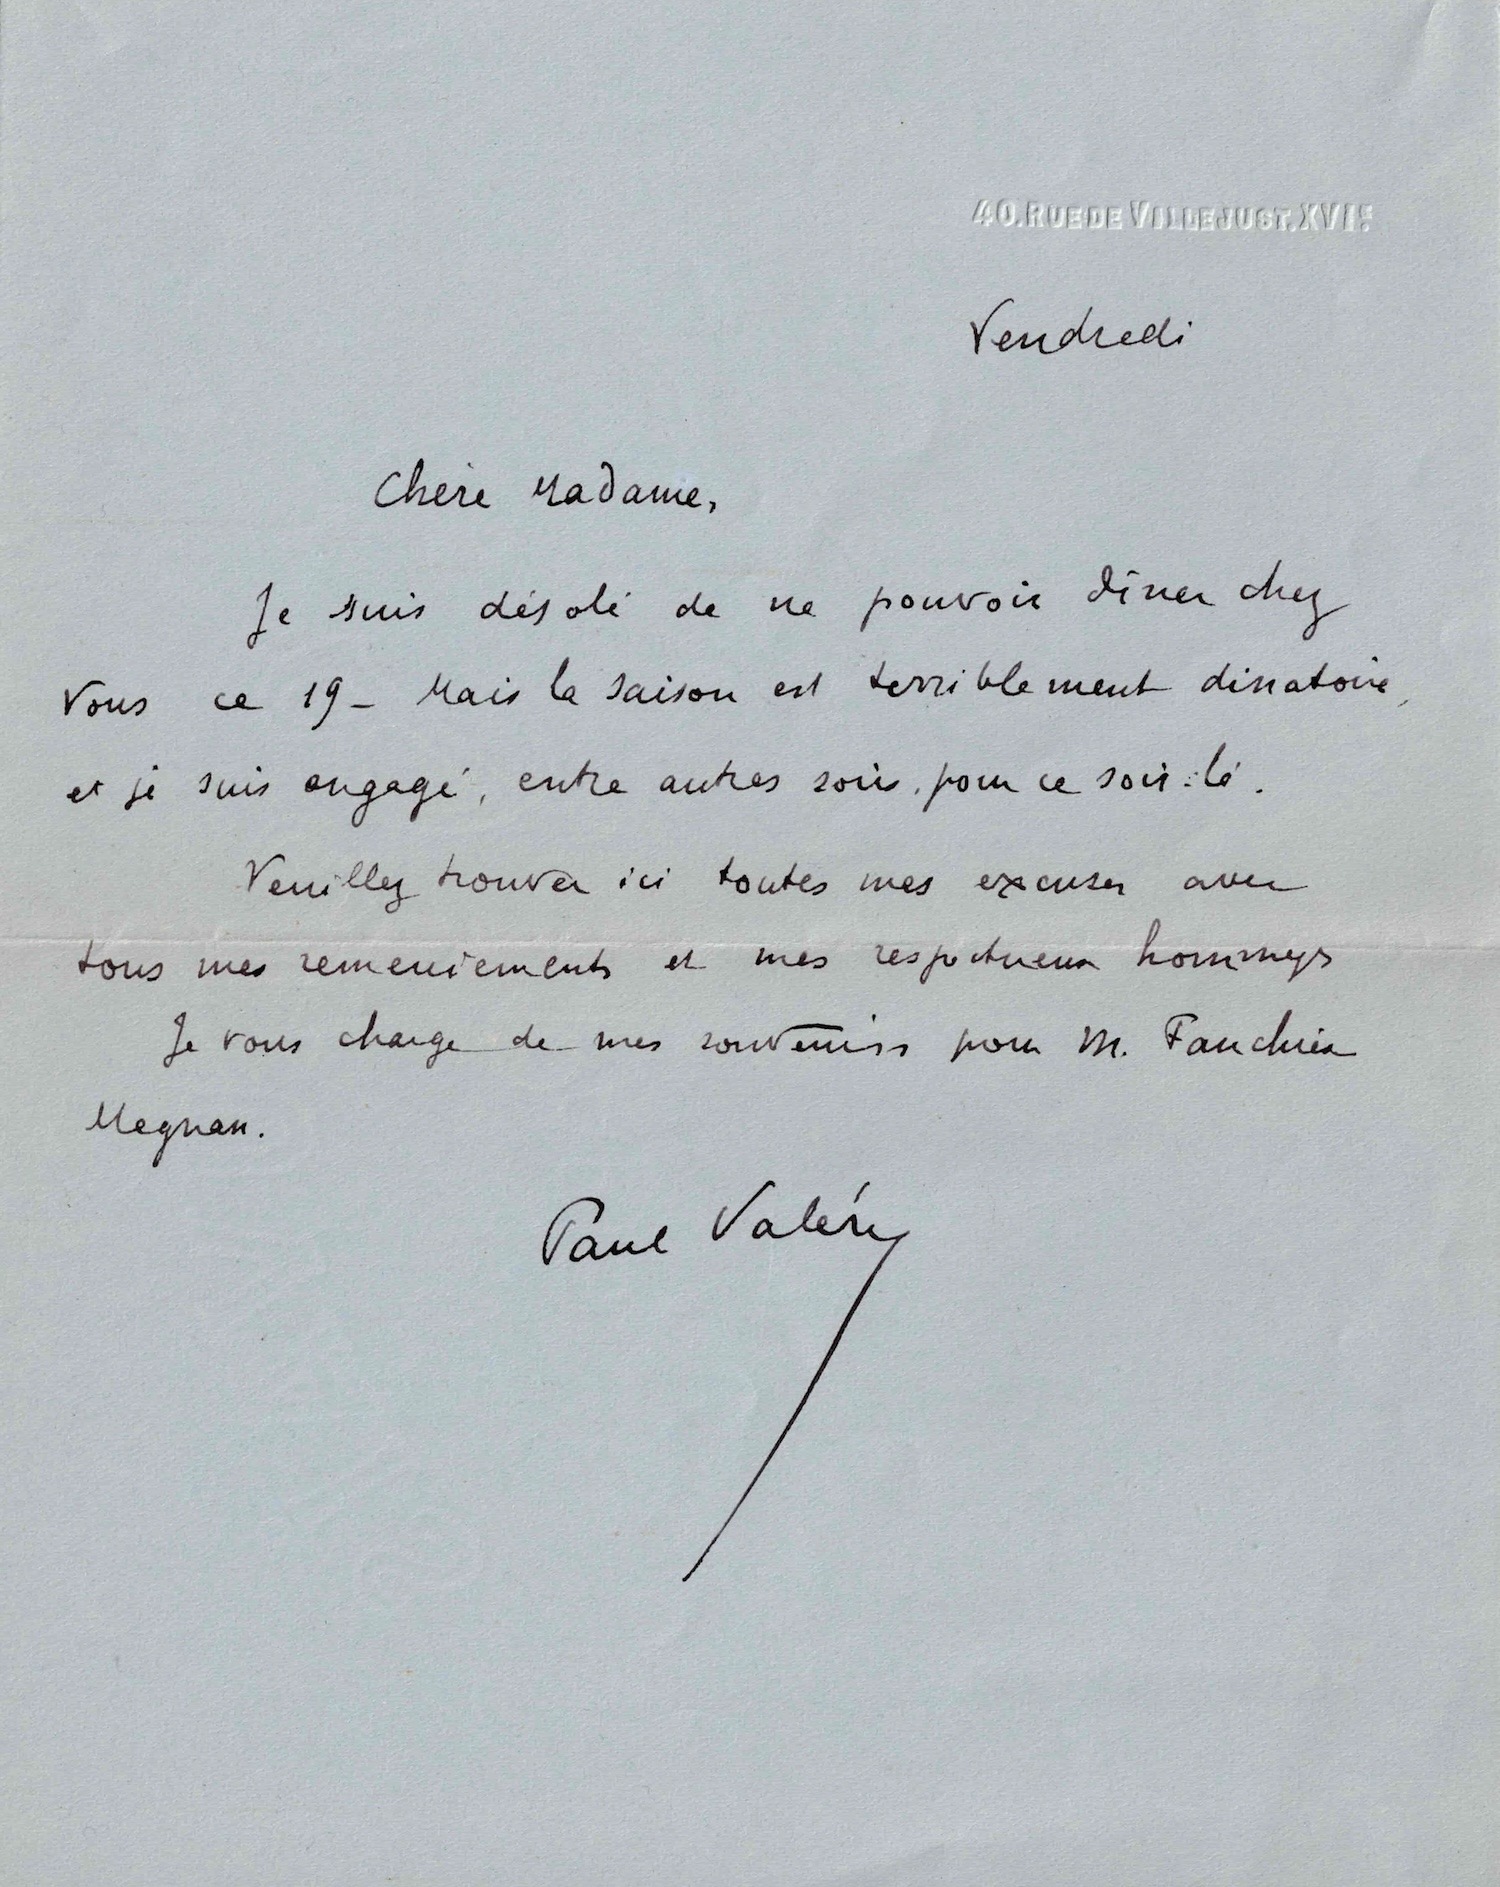 40. RUE DE VILLEJUST. XVIᵉ
Vendredi
Chère Madame,
Je suis désolé de ne pouvoir dîner chez
vous ce 19 – Mais la saison est terriblement dînatoire,
et je suis engagé, entre autres soirs, pour ce soir-là.
Veuillez trouver ici toutes mes excuses avec
tous mes remerciements et mes respectueux hommages
Je vous charge de mes souvenirs pour M. Fauchier
Magnan.
Paul Valéry